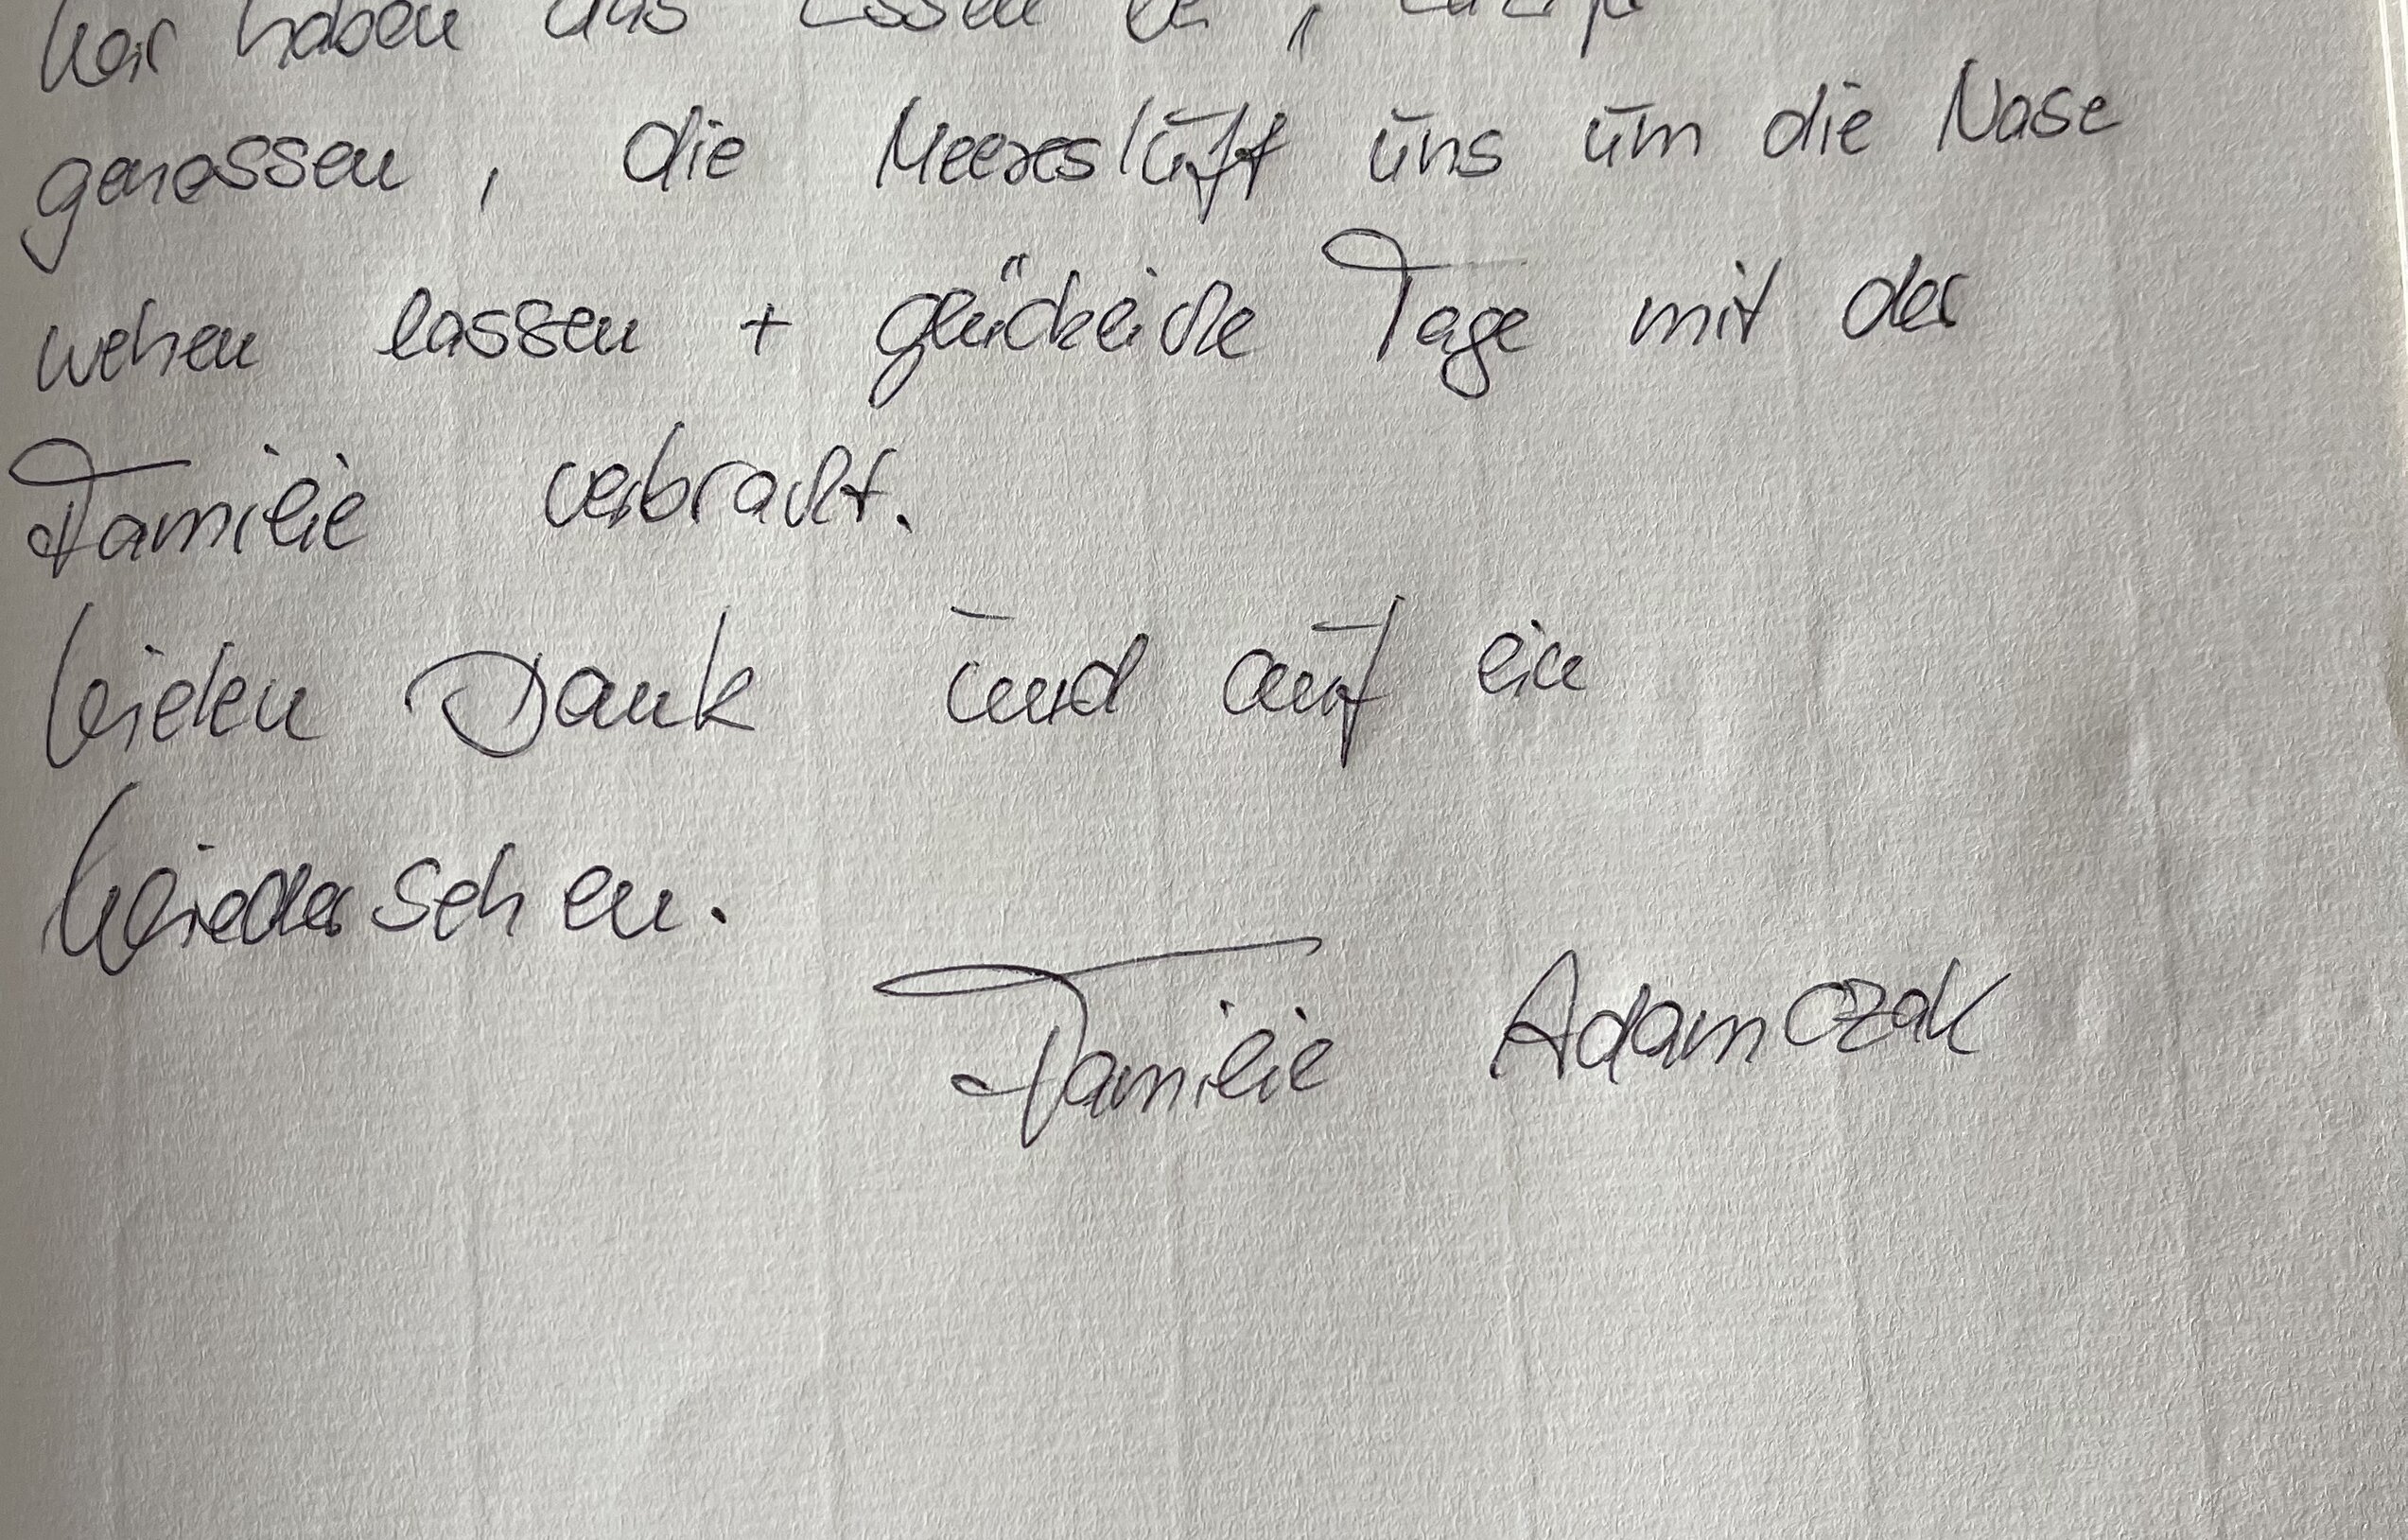 Wir haben das Essen
genossen, die Meeresluft uns um die Nase
wehen lassen + glückliche Tage mit der
Familie verbracht.
Vielen Dank und auf ein
Wiedersehen.
Familie Adamczak